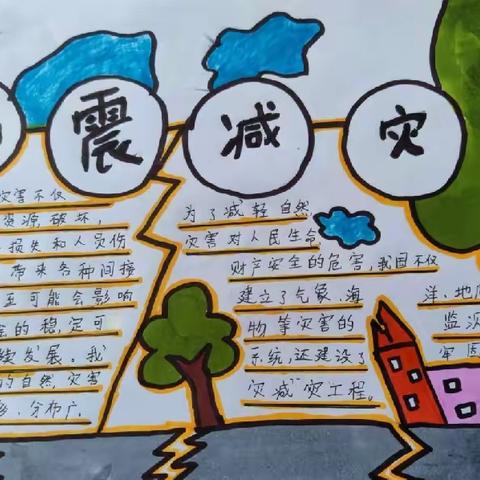 震减灾
灾害不仅
资源,破坏,
损失和人员伤
带来各种间接
至可能会影响
的稳,定可
续发展。我
的自然,灾害
多、分布广,
为了减轻自然
灾害对人民生命
财产安全的危害,我国不仅
建立了气象、海 洋、地
物等灾害的 监
系统,还建设了
灾减"灾工程。